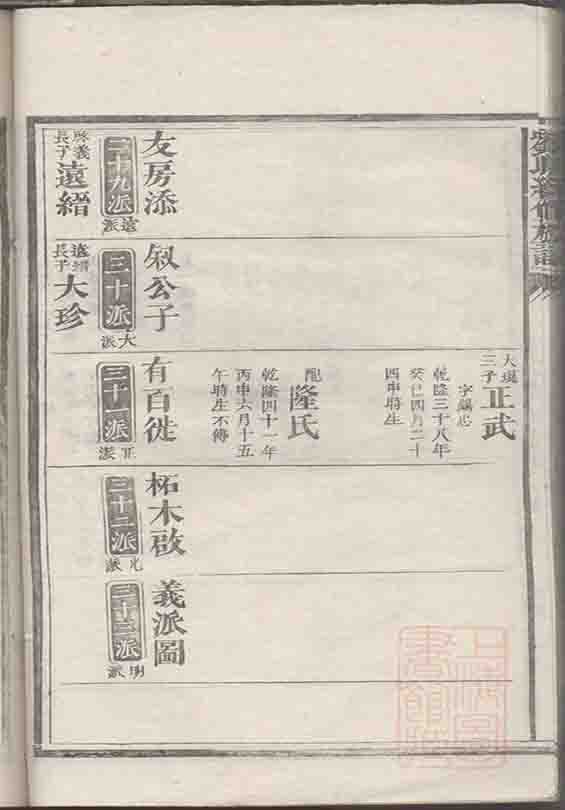 續修族譜
三子
正武
乾隆三十八年
癸巳四月二十
四申時生
配
隆氏
乾隆四十一年
丙申六月十五
午時生不傳
友房添
叙公子
有百徙
柘木啟
義派圖
二十九派
遠派
三十派
大派
三十一派
正派
三十二派
光派
三十三派
明派
啟義
長子
遠縉
遠縉
長子
大珍
上海圖
書館藏